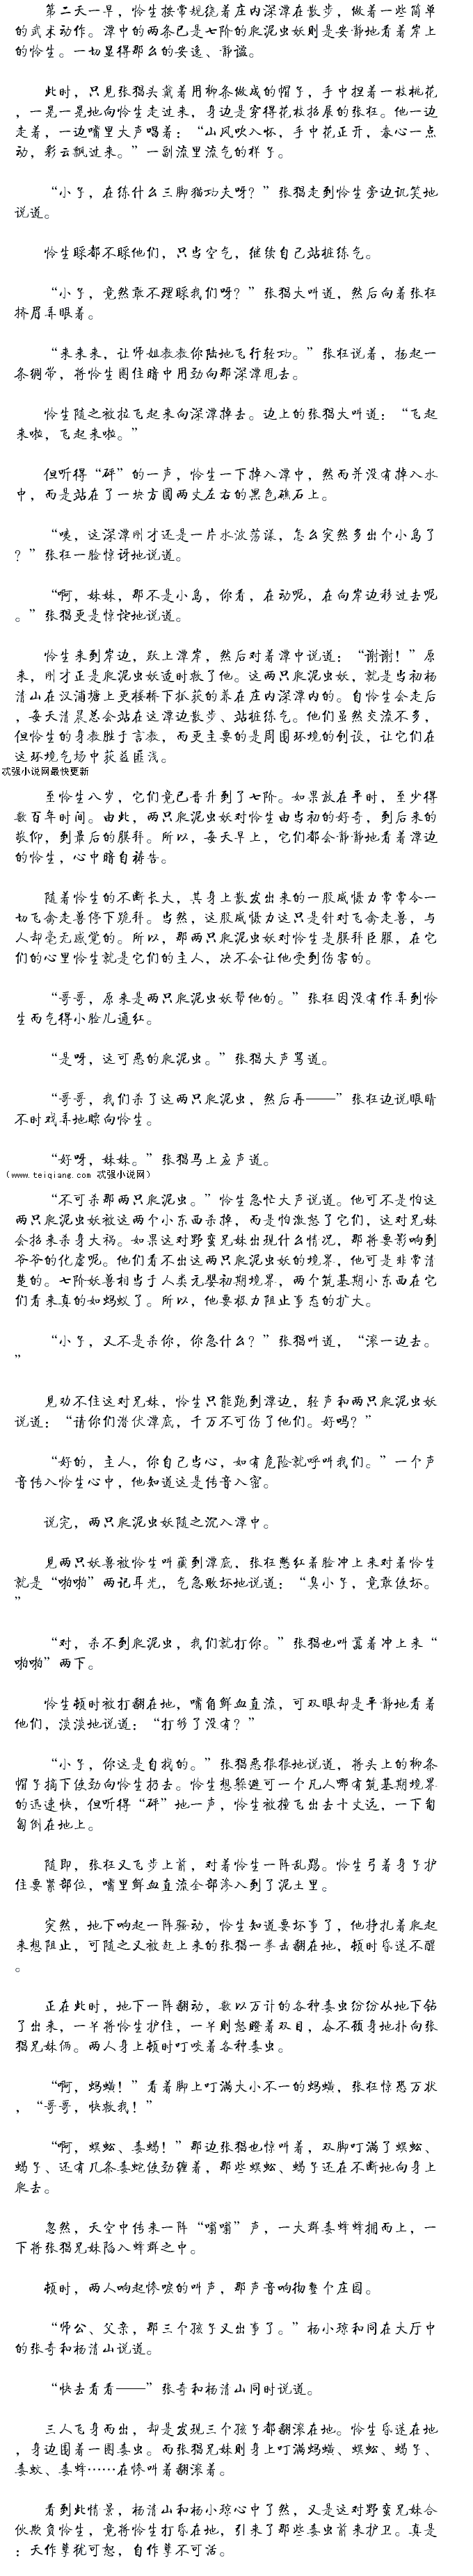 第二天一早，怜生按常规绕着庄内深潭在散步，做着一些简单
的武术动作。潭中的两条已是七阶的爬泥虫妖则是安静地看着岸上
的怜生。一切显得那么的安逸、静谧。
此时，只见张猖头戴着用柳条做成的帽子，手中捏着一枝桃花，
一晃一晃地向怜生走过来，身边是穿得花枝招展的张枉。他一边
走着，一边嘴里大声唱着：“山风吹入怀，手中花正开，春心一点
动，彩云飘过来。”一副流里流气的样子。
“小子，在练什么三脚猫功夫呀？”张猖走到怜生旁边讥笑地
说道。
怜生睬都不睬他们，只当空气，继续自己站桩练气。
“小子，竟然敢不理睬我们呀？”张猖大叫道，然后向着张枉
挤眉弄眼着。
“来来来，让师姐教教你陆地飞行轻功。”张枉说着，扬起一
条绸带，将怜生圈住暗中用劲向那深潭甩去。
怜生随之被拉飞起来向深潭掉去。边上的张猖大叫道：“飞起
来啦，飞起来啦。”
但听得“砰”的一声，怜生一下掉入潭中，然而并没有掉入水
中，而是站在了一块方圆两丈左右的黑色礁石上。
“咦，这深潭刚才还是一片水波荡漾，怎么突然多出个小岛了
？”张枉一脸惊讶地说道。
“啊，妹妹，那不是小岛，你看，在动呢，在向岸边移过去呢
。”张猖更是惊诧地说道。
怜生来到岸边，跃上潭岸，然后对着潭中说道：“谢谢！”原
来，刚才正是爬泥虫妖适时救了他。这两只爬泥虫妖，就是当初杨
清山在汉浦塘上更楼桥下抓获的养在庄内深潭内的。自怜生会走后
，每天清晨总会站在这潭边散步、站桩练气。他们虽然交流不多，
但怜生的身教胜于言教，而更主要的是周围环境的创设，让它们在
这环境气场中获益匪浅。
忒强小说网最快更新
至怜生八岁，它们竟已晋升到了七阶。如果放在平时，至少得
数百年时间。由此，两只爬泥虫妖对怜生由当初的好奇，到后来的
敬仰，到最后的膜拜。所以，每天早上，它们都会静静地看着潭边
的怜生，心中暗自祷告。
随着怜生的不断长大，其身上散发出来的一股威慑力常常令一
切飞禽走兽停下跪拜。当然，这股威慑力这只是针对飞禽走兽，与
人却毫无感觉的。所以，那两只爬泥虫妖对怜生是膜拜臣服，在它
们的心里怜生就是它们的主人，决不会让他受到伤害的。
“哥哥，原来是两只爬泥虫妖帮他的。”张枉因没有作弄到怜
生而气得小脸儿通红。
“是呀，这可恶的爬泥虫。”张猖大声骂道。
“哥哥，我们杀了这两只爬泥虫，然后再——”张枉边说眼睛
不时戏弄地瞟向怜生。
“好呀，妹妹。”张猖马上应声道。
（www.teiqiang.com 忒强小说网）
“不可杀那两只爬泥虫。”怜生急忙大声说道。他可不是怕这
两只爬泥虫妖被这两个小东西杀掉，而是怕激怒了它们，这对兄妹
会招来杀身大祸。如果这对野蛮兄妹出现什么情况，那将要影响到
爷爷的化虚呢。他们看不出这两只爬泥虫妖的境界，他可是非常清
楚的。七阶妖兽相当于人类元婴初期境界，两个筑基期小东西在它
们看来真的如蚂蚁了。所以，他要极力阻止事态的扩大。
“小子，又不是杀你，你急什么？”张猖叫道，“滚一边去。
”
见劝不住这对兄妹，怜生只能跑到潭边，轻声和两只爬泥虫妖
说道：“请你们潜伏潭底，千万不可伤了他们。好吗？”
“好的，主人，你自己当心，如有危险就呼叫我们。”一个声
音传入怜生心中，他知道这是传音入密。
说完，两只爬泥虫妖随之沉入潭中。
见两只妖兽被怜生叫藏到潭底，张枉憋红着脸冲上来对着怜生
就是“啪啪”两记耳光，气急败坏地说道：“臭小子，竟敢使坏。
”
“对，杀不到爬泥虫，我们就打你。”张猖也叫嚣着冲上来“
啪啪”两下。
怜生顿时被打翻在地，嘴角鲜血直流，可双眼却是平静地看着
他们，淡淡地说道：“打够了没有？”
“小子，你这是自找的。”张猖恶狠狠地说道，将头上的柳条
帽子摘下使劲向怜生扔去。怜生想躲避可一个凡人哪有筑基期境界
的迅速快，但听得“砰”地一声，怜生被撞飞出去十丈远，一下匍
匐倒在地上。
随即，张枉又飞步上前，对着怜生一阵乱踢。怜生弓着身子护
住要紧部位，嘴里鲜血直流全部渗入到了泥土里。
突然，地下响起一阵骚动，怜生知道要坏事了，他挣扎着爬起
来想阻止，可随之又被赶上来的张猖一拳击翻在地，顿时昏迷不醒
。
正在此时，地下一阵翻动，数以万计的各种毒虫纷纷从地下钻
了出来，一半将怜生护住，一半则怒瞪着双目，奋不顾身地扑向张
猖兄妹俩。两人身上顿时叮咬着各种毒虫。
“啊，蚂蟥！”看着脚上叮满大小不一的蚂蟥，张枉惊恐万状
，“哥哥，快救我！”
“啊，蜈蚣、毒蝎！”那边张猖也惊叫着，双脚叮满了蜈蚣、
蝎子、还有几条毒蛇使劲缠着，那些蜈蚣、蝎子还在不断地向身上
爬去。
忽然，天空中传来一阵“嗡嗡”声，一大群毒蜂蜂拥而上，一
下将张猖兄妹陷入蜂群之中。
顿时，两人响起惨唳的叫声，那声音响彻整个庄园。
“师公、父亲，那三个孩子又出事了。”杨小琼和同在大厅中
的张奇和杨清山说道。
“快去看看——”张奇和杨清山同时说道。
三人飞身而出，却是发现三个孩子都翻滚在地。怜生昏迷在地
，身边围着一圈毒虫。而张猖兄妹则身上叮满蚂蟥、蜈蚣、蝎子、
毒蚁、毒蜂……在惨叫着翻滚着。
看到此情景，杨清山和杨小琼心中了然，又是这对野蛮兄妹合
伙欺负怜生，竟将怜生打昏在地，引来了那些毒虫前来护卫。真是
：天作孽犹可恕，自作孽不可活。